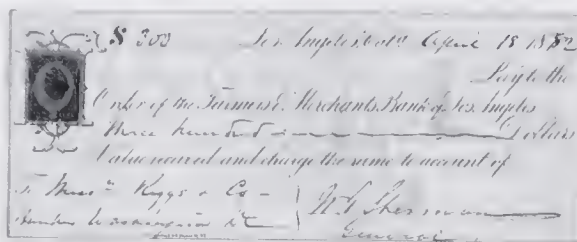 $ 300 Los Angeles, Cala. April 18 1882
Pay to the
Order of the Farmers & Merchants Bank of Los Angeles
Three hundred Dollars
Value received and charge the same to account of
To Messrs Riggs & Co
Bankers Washington DC
W T Sherman
General